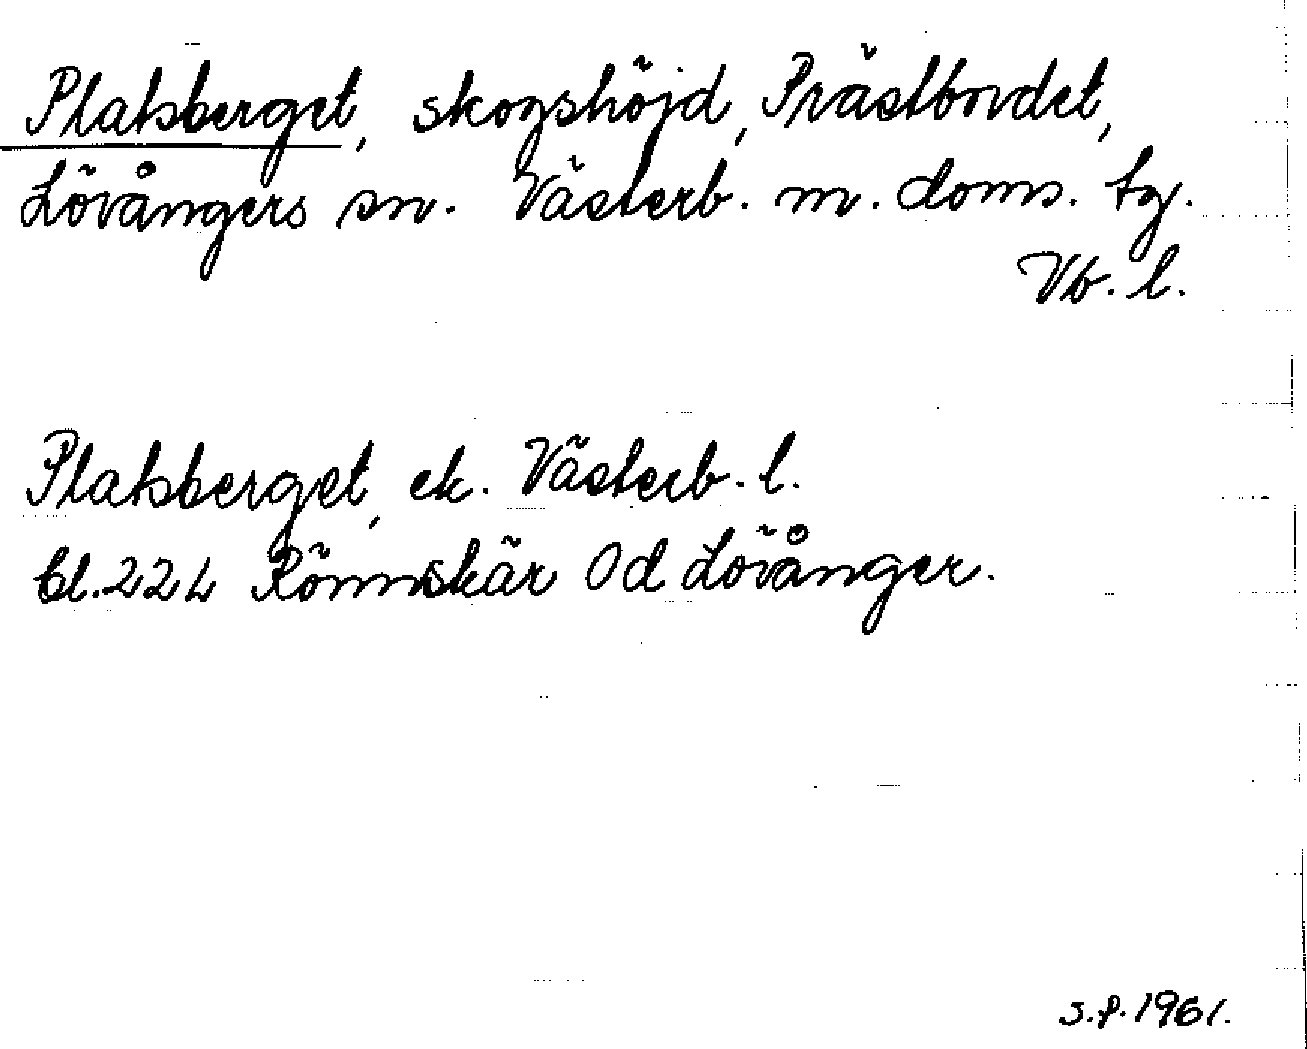 Platsberget, skogshöjd, Prästbordet,
Lövångers sn. Västerb. m. doms. tg.
Vb. l.
Platsberget, ek. Västerb. l.
bl. 22L Rönnskär Od Lövånger.
s.p. 1961.